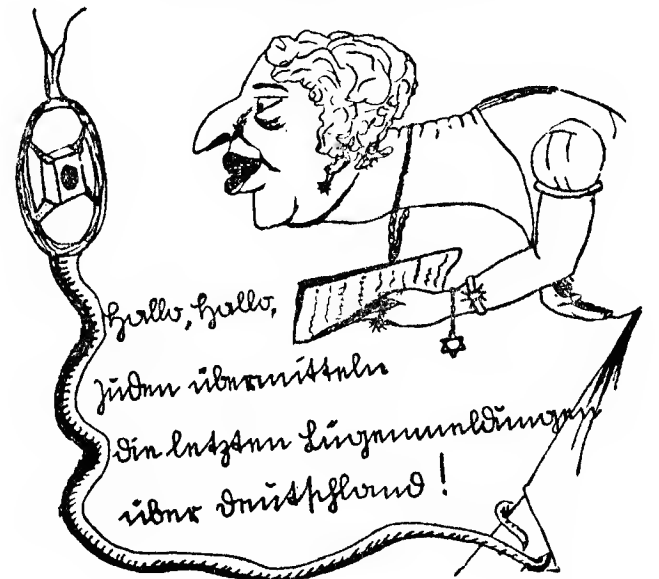 Hallo, Hallo,
Juden übermitteln
die letzten Lügenmeldungen
über Deutschland!